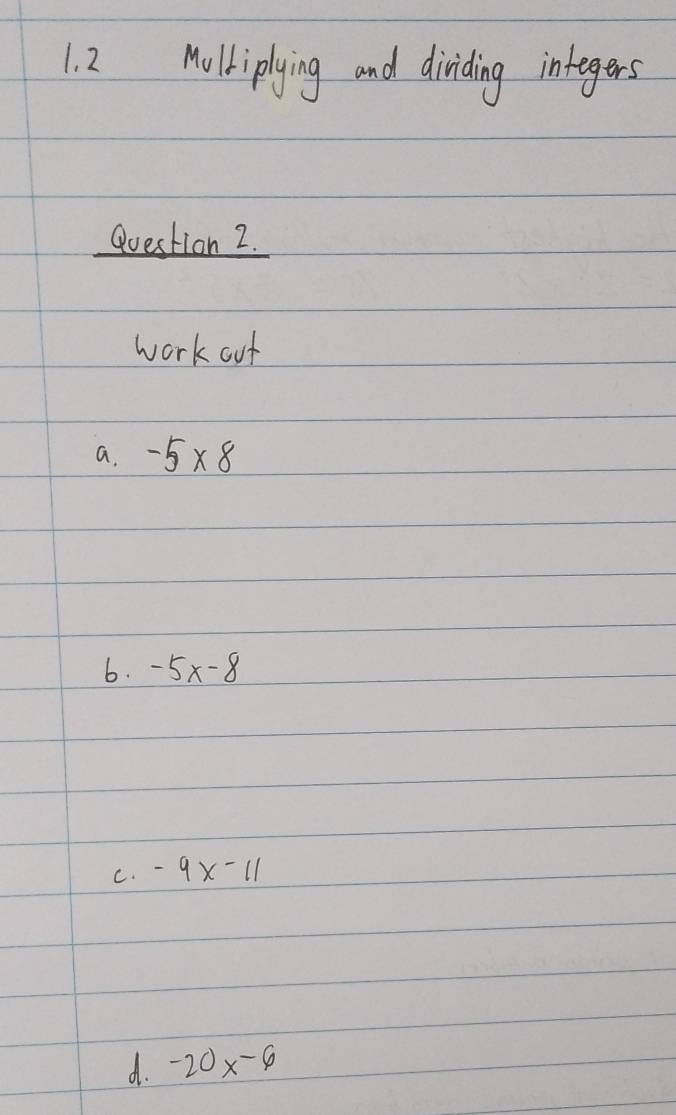 1.2 Multiplying and dividing integers
Question 2.
Work out
a. -5 x 8
b. -5x-8
c. -9x-11
d. -20x-6